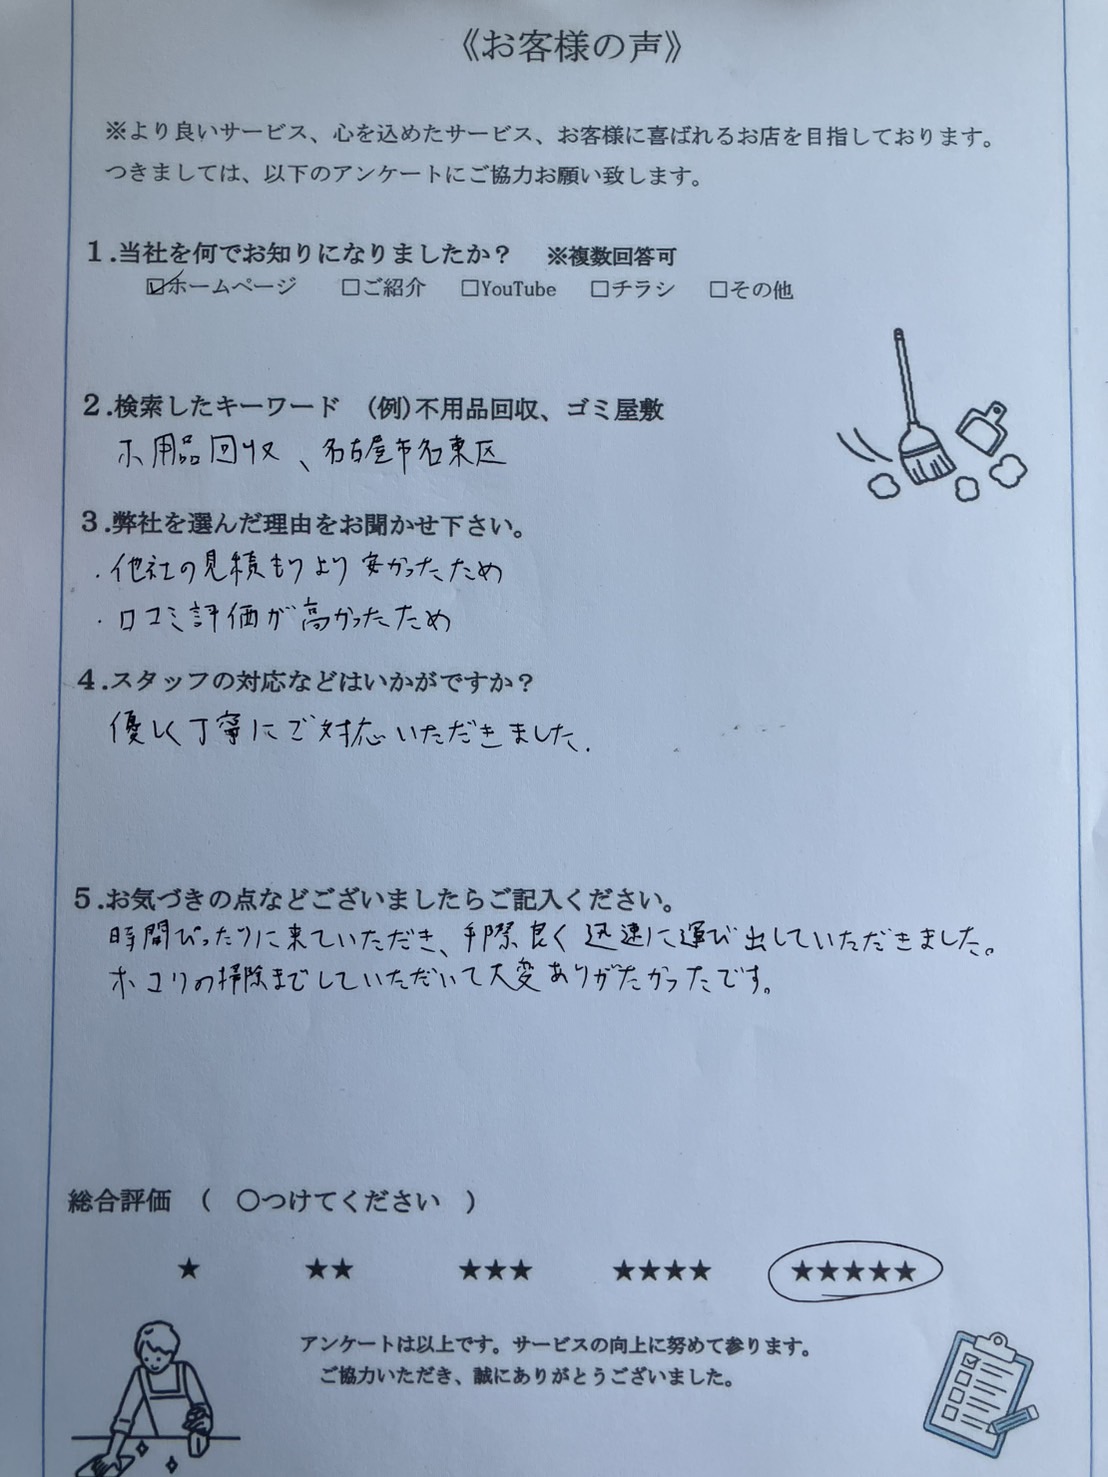 《お客様の声》
※より良いサービス、心を込めたサービス、お客様に喜ばれるお店を目指しております。
つきましては、以下のアンケートにご協力お願い致します。
1.当社を何でお知りになりましたか？　※複数回答可
☑ホームページ　□ご紹介　□YouTube　□チラシ　□その他
2.検索したキーワード　(例)不用品回収、ゴミ屋敷
不用品回収、名古屋市名東区
3.弊社を選んだ理由をお聞かせ下さい。
・他社の見積もりより安かったため
・口コミ評価が高かったため
4.スタッフの対応などはいかがですか？
優しく丁寧にご対応いただきました.
5.お気づきの点などございましたらご記入ください。
時間ぴったりに来ていただき、手際良く迅速に運び出していただきました。
ホコリの掃除までしていただいて大変ありがたかったです。
総合評価　（　○つけてください　）
★　★★　★★★　★★★★　★★★★★
アンケートは以上です。サービスの向上に努めて参ります。
ご協力いただき、誠にありがとうございました。